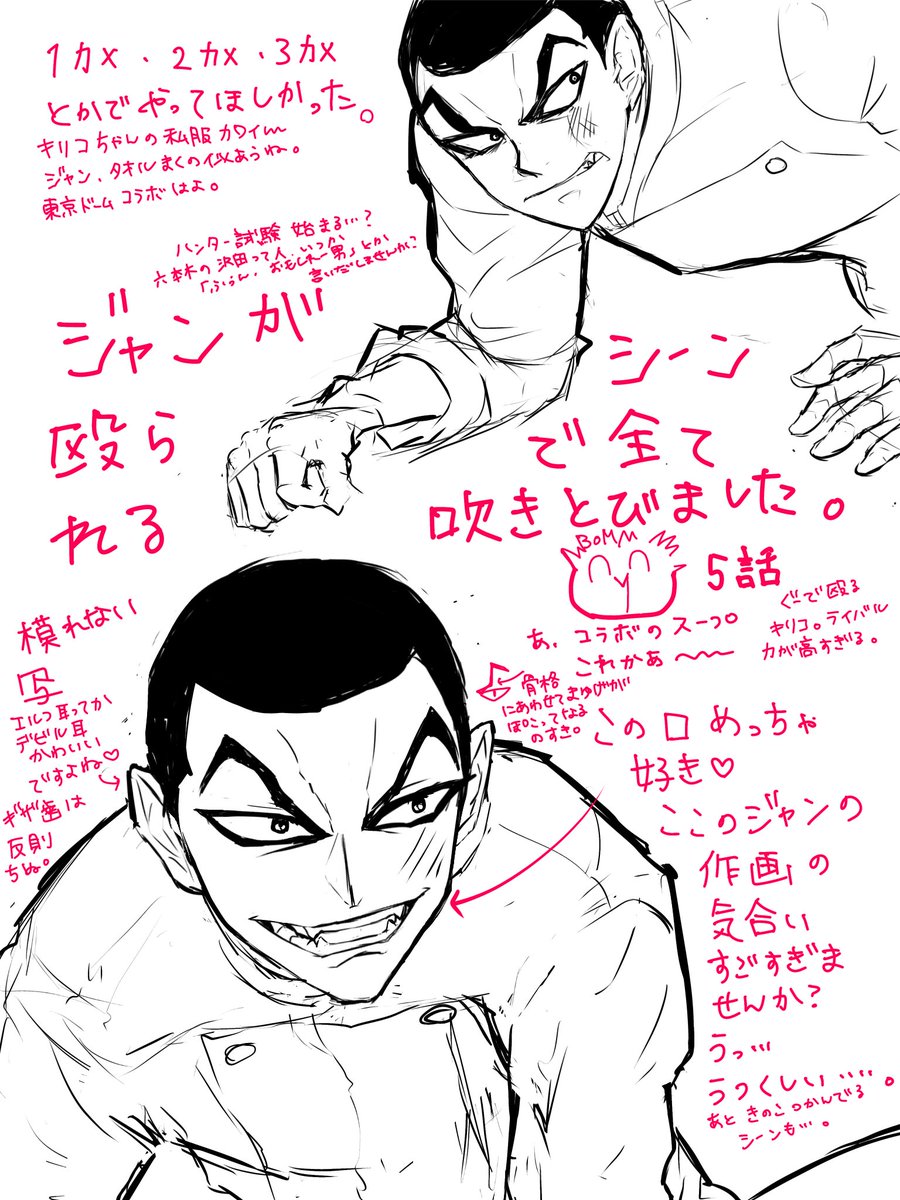 1カメ、2カメ、3カメ
とかでやってほしかった。
キリコちゃんの私服カワイィー
ジャン、タオルまくの似あうね。
東京ドームコラボはよ。
ハンター試験始まる…?
六本木の沢田って人、いつか
「ふぅん、おもしれー男」とか
言いだしませんか?
ジャンが
殴ら
れる
シーン
で全て
吹きとびました。
BOMM
5話
ぐーで殴る
キリコ。ライバル
力が高すぎる。
あ、コラボのスープ。
これかぁ〜〜
骨格
にあわせてまゆげが
ぽこってなる
のすき。
模れない
写
エルフ耳ってか
デビル耳
かわいい
ですよね♡
ギザ歯は
反則
ちぬ。
この口めっちゃ
好き♡
ここのジャンの
作画の
気合い
すごすぎま
せんか?
うっ…
うつくしい……。
あときのこつかんでる
シーンも…。